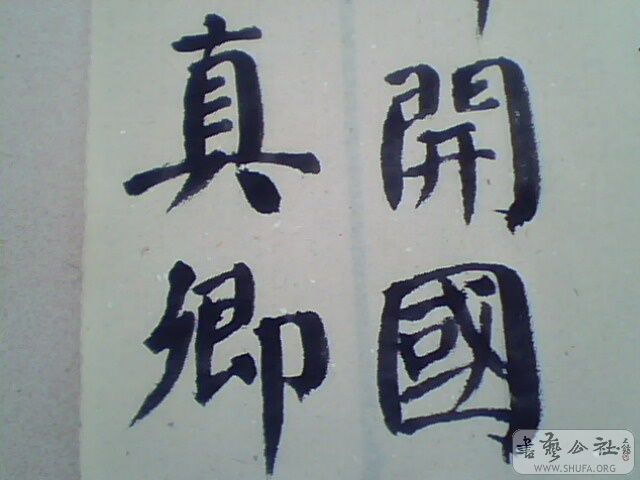 開國
真卿
書藝公社
WWW.SHUFA.ORG